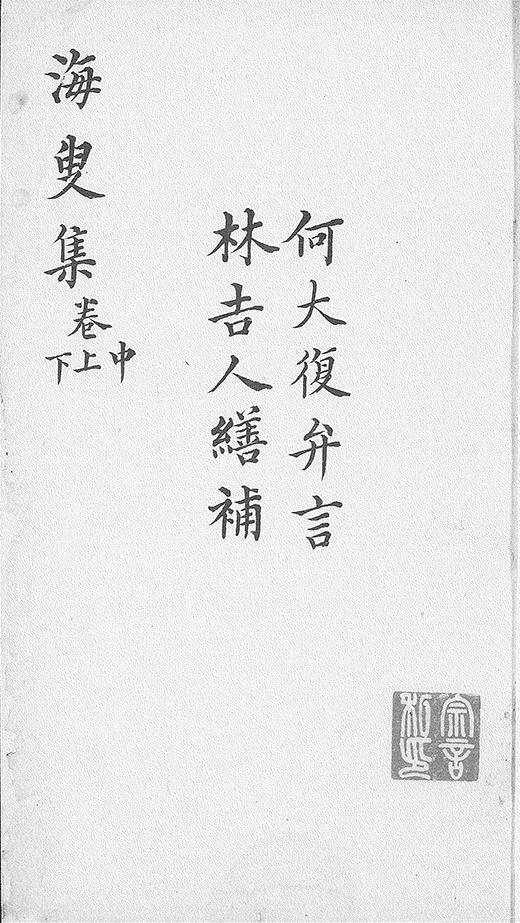 何大復弁言
林吉人繕補
海叟集卷
中
上
下
宗言
私印